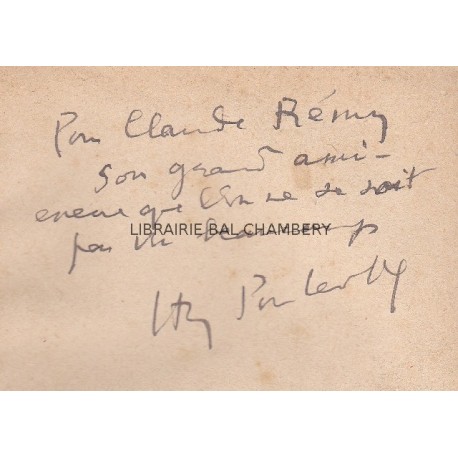 Pour Claude Rémy
son grand ami -
encore que l'on ne se soit
pas vu beaucoup
LIBRAIRIE BAL CHAMBERY
Hy Poulaille